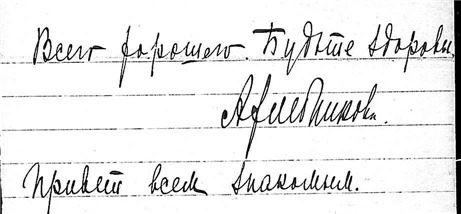 Всего хорошего. Будьте здоровы.
Привет всем знакомым.